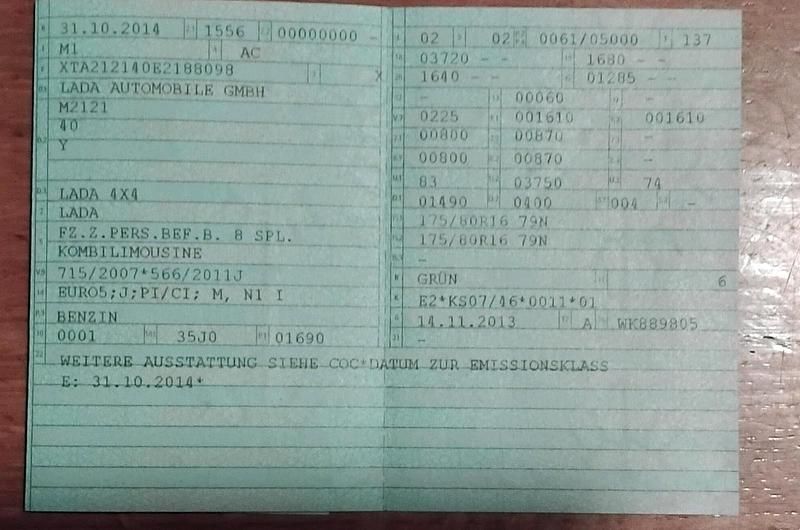 31.10.2014 1556 00000000 -
M1 AC
XTA212140E2188098 X
LADA AUTOMOBILE GMBH
M2121
40
Y
LADA 4X4
LADA
FZ.Z.PERS.BEF.B. 8 SPL.
KOMBILIMOUSINE
715/2007*566/2011J
EURO5;J;PI/CI; M, N1 I
BENZIN
0001 35J0 01690
02 02 0061/05000 137
03720 - - 1680 - -
1640 - - 01285 - -
- 00060 -
0225 001610 001610
00800 00870 -
00800 00870 -
83 03750 74
01490 0400 004 -
175/80R16 79N
175/80R16 79N
-
GRÜN 6
E2*KS07/46*0011*01
14.11.2013 A WK889805
-
WEITERE AUSSTATTUNG SIEHE COC*DATUM ZUR EMISSIONSKLASS
E: 31.10.2014*